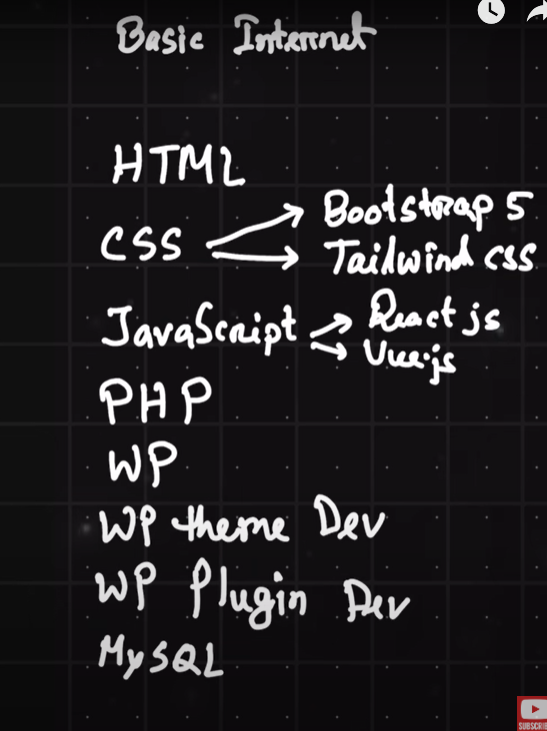 Basic Internet
HTML
CSS → Bootstrap 5
→ Tailwind css
JavaScript → React js
→ Vue.js
PHP
WP
WP theme Dev
WP Plugin Dev
MySQL
SUBSCRIB